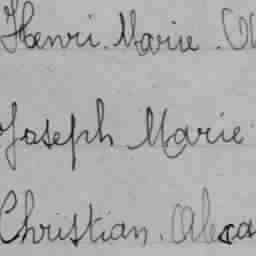 Henri. Marie.
Joseph Marie
Christian.